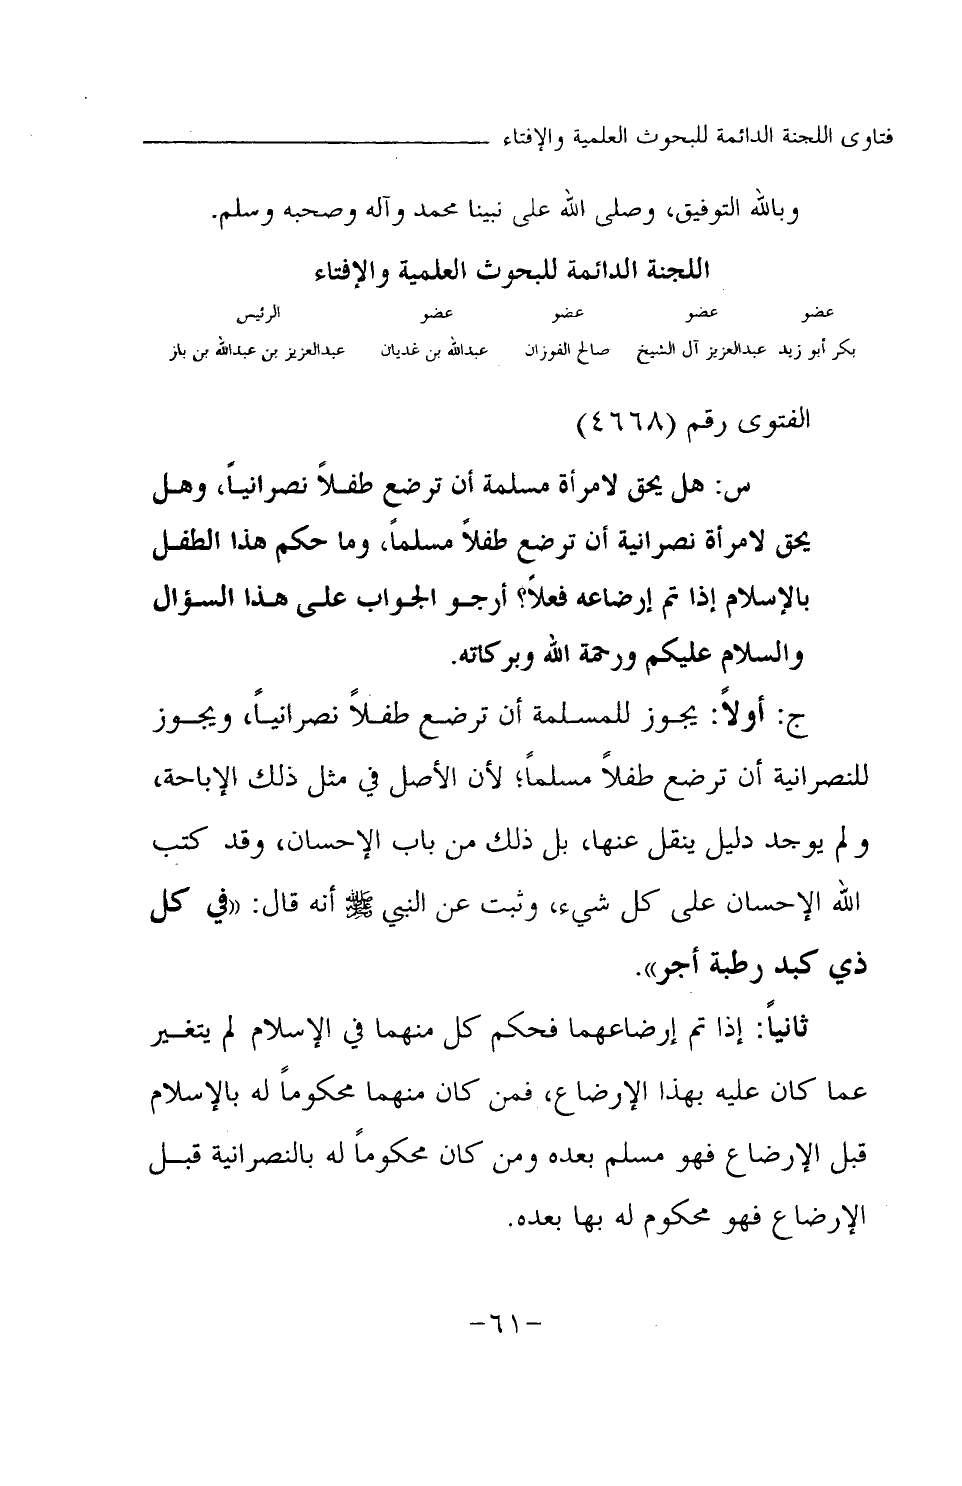 فتاوى اللجنة الدائمة للبحوث العلمية والإفتاء
وبالله التوفيق، وصلى الله على نبينا محمد وآله وصحبه وسلم.
اللجنة الدائمة للبحوث العلمية والإفتاء
عضو عضو عضو عضو الرئيس
بكر أبو زيد عبدالعزيز آل الشيخ صالح الفوزان عبدالله بن غديان عبدالعزيز بن عبدالله بن باز
الفتوى رقم (٤٦٦٨)
س: هل يحق لامرأة مسلمة أن ترضع طفـلاً نصرانيـاً، وهـل
يحق لامرأة نصرانية أن ترضع طفلاً مسلماً، وما حكم هذا الطفـل
بالإسلام إذا تم إرضاعه فعلاً؟ أرجـو الجواب علـى هـذا السـؤال
والسلام عليكم ورحمة الله وبركاته.
ج: أولاً: يجـوز للمسلمة أن ترضـع طفـلاً نصرانيـاً، ويجـوز
للنصرانية أن ترضع طفلاً مسلماً؛ لأن الأصل في مثل ذلك الإباحة،
ولم يوجد دليل ينقل عنها، بل ذلك من باب الإحسان، وقد كتب
الله الإحسان على كل شيء، وثبت عن النبي ﷺ أنه قال: «في كل
ذي كبد رطبة أجر».
ثانياً: إذا تم إرضاعهما فحكم كل منهما في الإسلام لم يتغـير
عما كان عليه بهذا الإرضاع، فمن كان منهما محكوماً له بالإسلام
قبل الإرضاع فهو مسلم بعده ومن كان محكوماً له بالنصرانية قبـل
الإرضاع فهو محكوم له بها بعده.
-٦١-